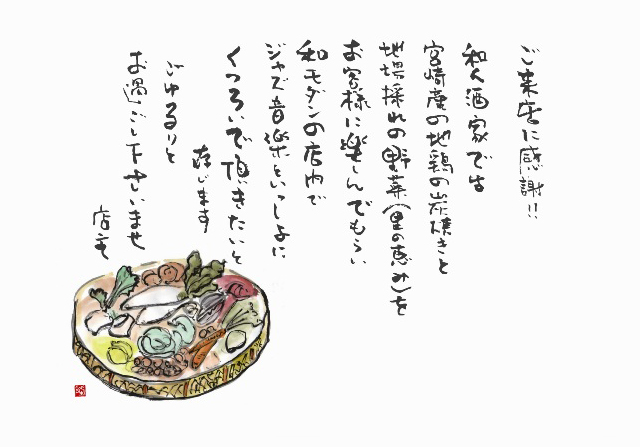 ご来店に感謝!!
和人酒家では
宮崎産の地鶏の炭焼きと
地場採れの野菜(里の恵み)を
お客様に楽しんでもらい
和モダンの店内で
ジャズ音楽といっしょに
くつろいで頂きたいと
存じます
ごゆるりと
お過ごし下さいませ
店主